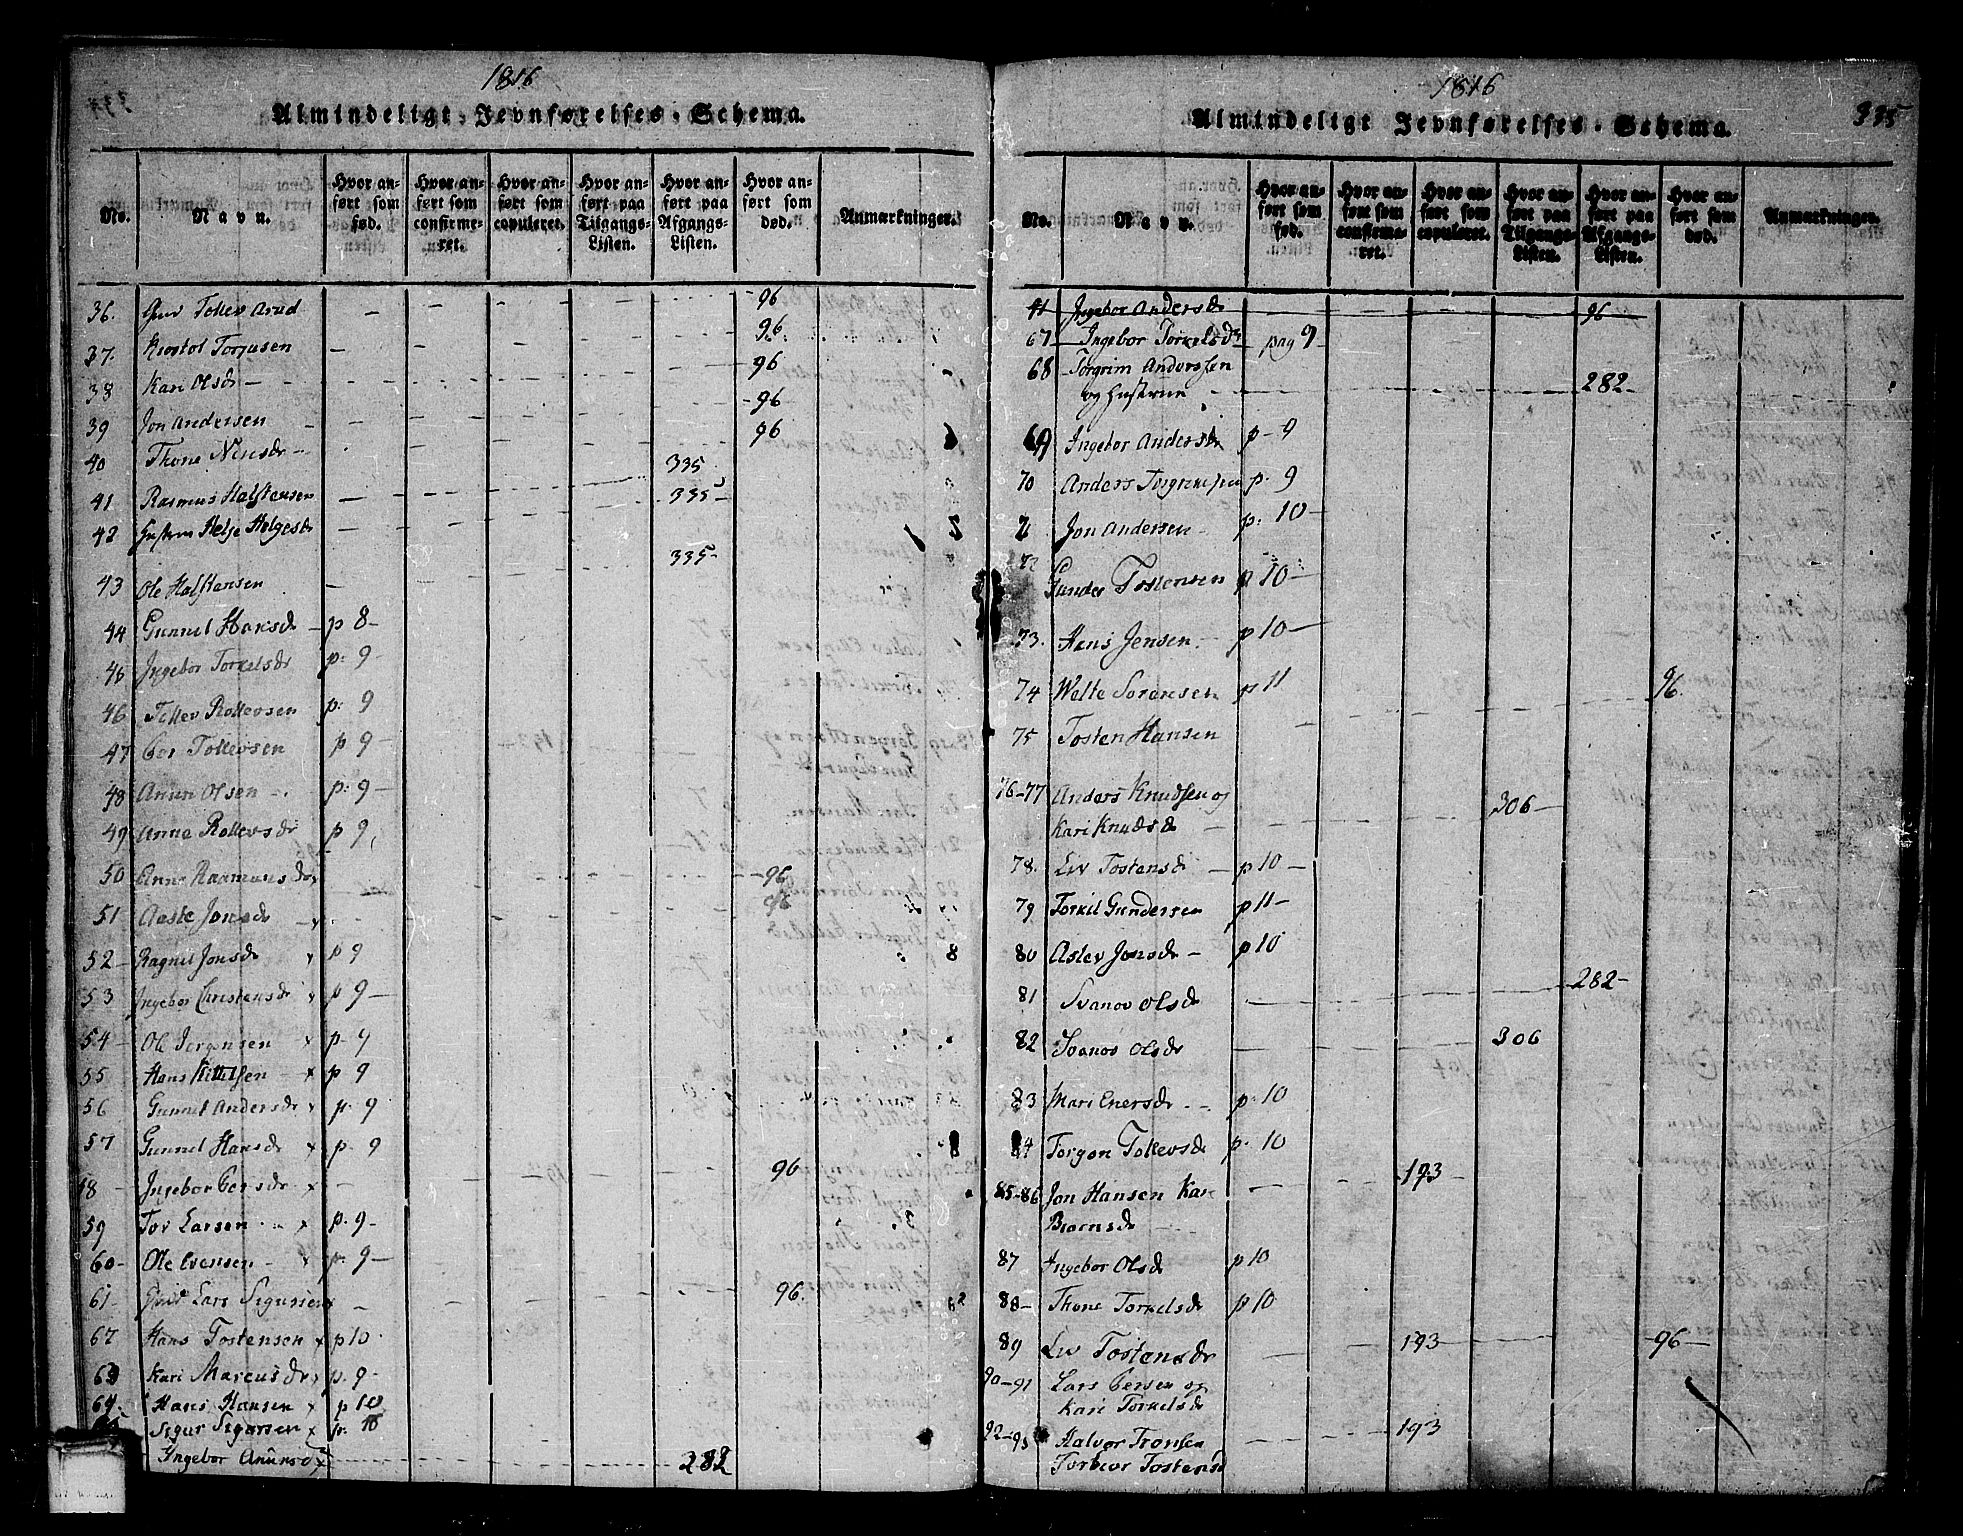 1816
Almindeligt Jevnførelses-Schema.
No.
Navn.
Hvor anført som fød.
Hvor anført som confirmeret.
Hvor anført som copuleret.
Hvor anført paa Tilgangs-Listen.
Hvor anført paa Afgangs-Listen.
Hvor anført som død.
Anmærkninger.
36. Tollev Arud - 96
37. Kiostol Torjusen - 96
38 Kari Olsdr - 96
39 Jon Andersen - 96
40 Thone Nirisdr - 96
41 Rasmus Halfstensen - 335
42 Hustru Helje Helgesdr - 335-
43 Ole Halfstensen - 335-
44 Gunnil Hansdr - p 8-
46 Ingebor Torkelsdr p. 9-
46 Tollev Rollevsen p. 9
47 Tollevsen p 9-
48 Anun Olsen - p. 9-
49 Anne Rollevsdr p 9
50 Anne Raamunsdr - 96
51 Aaste Jonsdr x - 96
52 Ragnil Jonsdr x p 9
53 Ingebor Christensdr x p 9-
54- Ole Jørgensen x p. 9
55 Hans Kittelsen - x p 9
56 Gunnil Andersdr x p. 9
57 Gunnil Hansdr x p. 9
18 Ingebor x - 96
59 Tor Larsen - x p. 9-
60- Ole Evensen - x p. 9-
61- Lars Sigursen x - 96.
62 Hans Tostensen x p 10
63 Kari Marcusdr x p. 9-
64. Hans Hansen x p 10
Sigur Sigursen x p. 10
Ingebor Anunsd x 282
1816
335
Almindeligt Jevnførelses-Schema.
No.
Navn.
Hvor anført som fød.
Hvor anført som confirmeret.
Hvor anført som copuleret.
Hvor anført paa Tilgangs-Listen.
Hvor anført paa Afgangs-Listen.
Hvor anført som død.
Anmærkninger.
Ingebor Andersdr 96
67 Ingebor Torkelsdr pag 9
68 Torgrim Anderssen
og Hustrue - 282-
69 Ingebor Andersdr p- 9
70 Anders Torgrimsen p. 9
71 Jon Andersen - p. 10-
72 Gunder Tostensen p 10-
73. Hans Jensen. - p 10-
74 Welte Sørensen p 11 96.
75 Tosten Hansen
76-77 Anders Knudsen og 306-
Kari Knudsdr
78. Liv Tostensdr - p 10-
79 Torkil Gundersen p 11-
80 Aslev Jonsdr - p 10
81 Svanov Olsdr 282-
82 Svanov Olsdr 306
83 Mari Enersdr - p. 10
84 Torgon Tollevsdr p. 10
85-86 Jon Hansen Kari 193
Biørnsdr
87 Ingebor Olsdr p 10
88- Thone Torkelsdr p 10
89 Liv Tostensdr 193 96
90-91 Lars og
Kari Torkelsdr
92-93 Halvor Tronsen 193
Torbior Tostensd